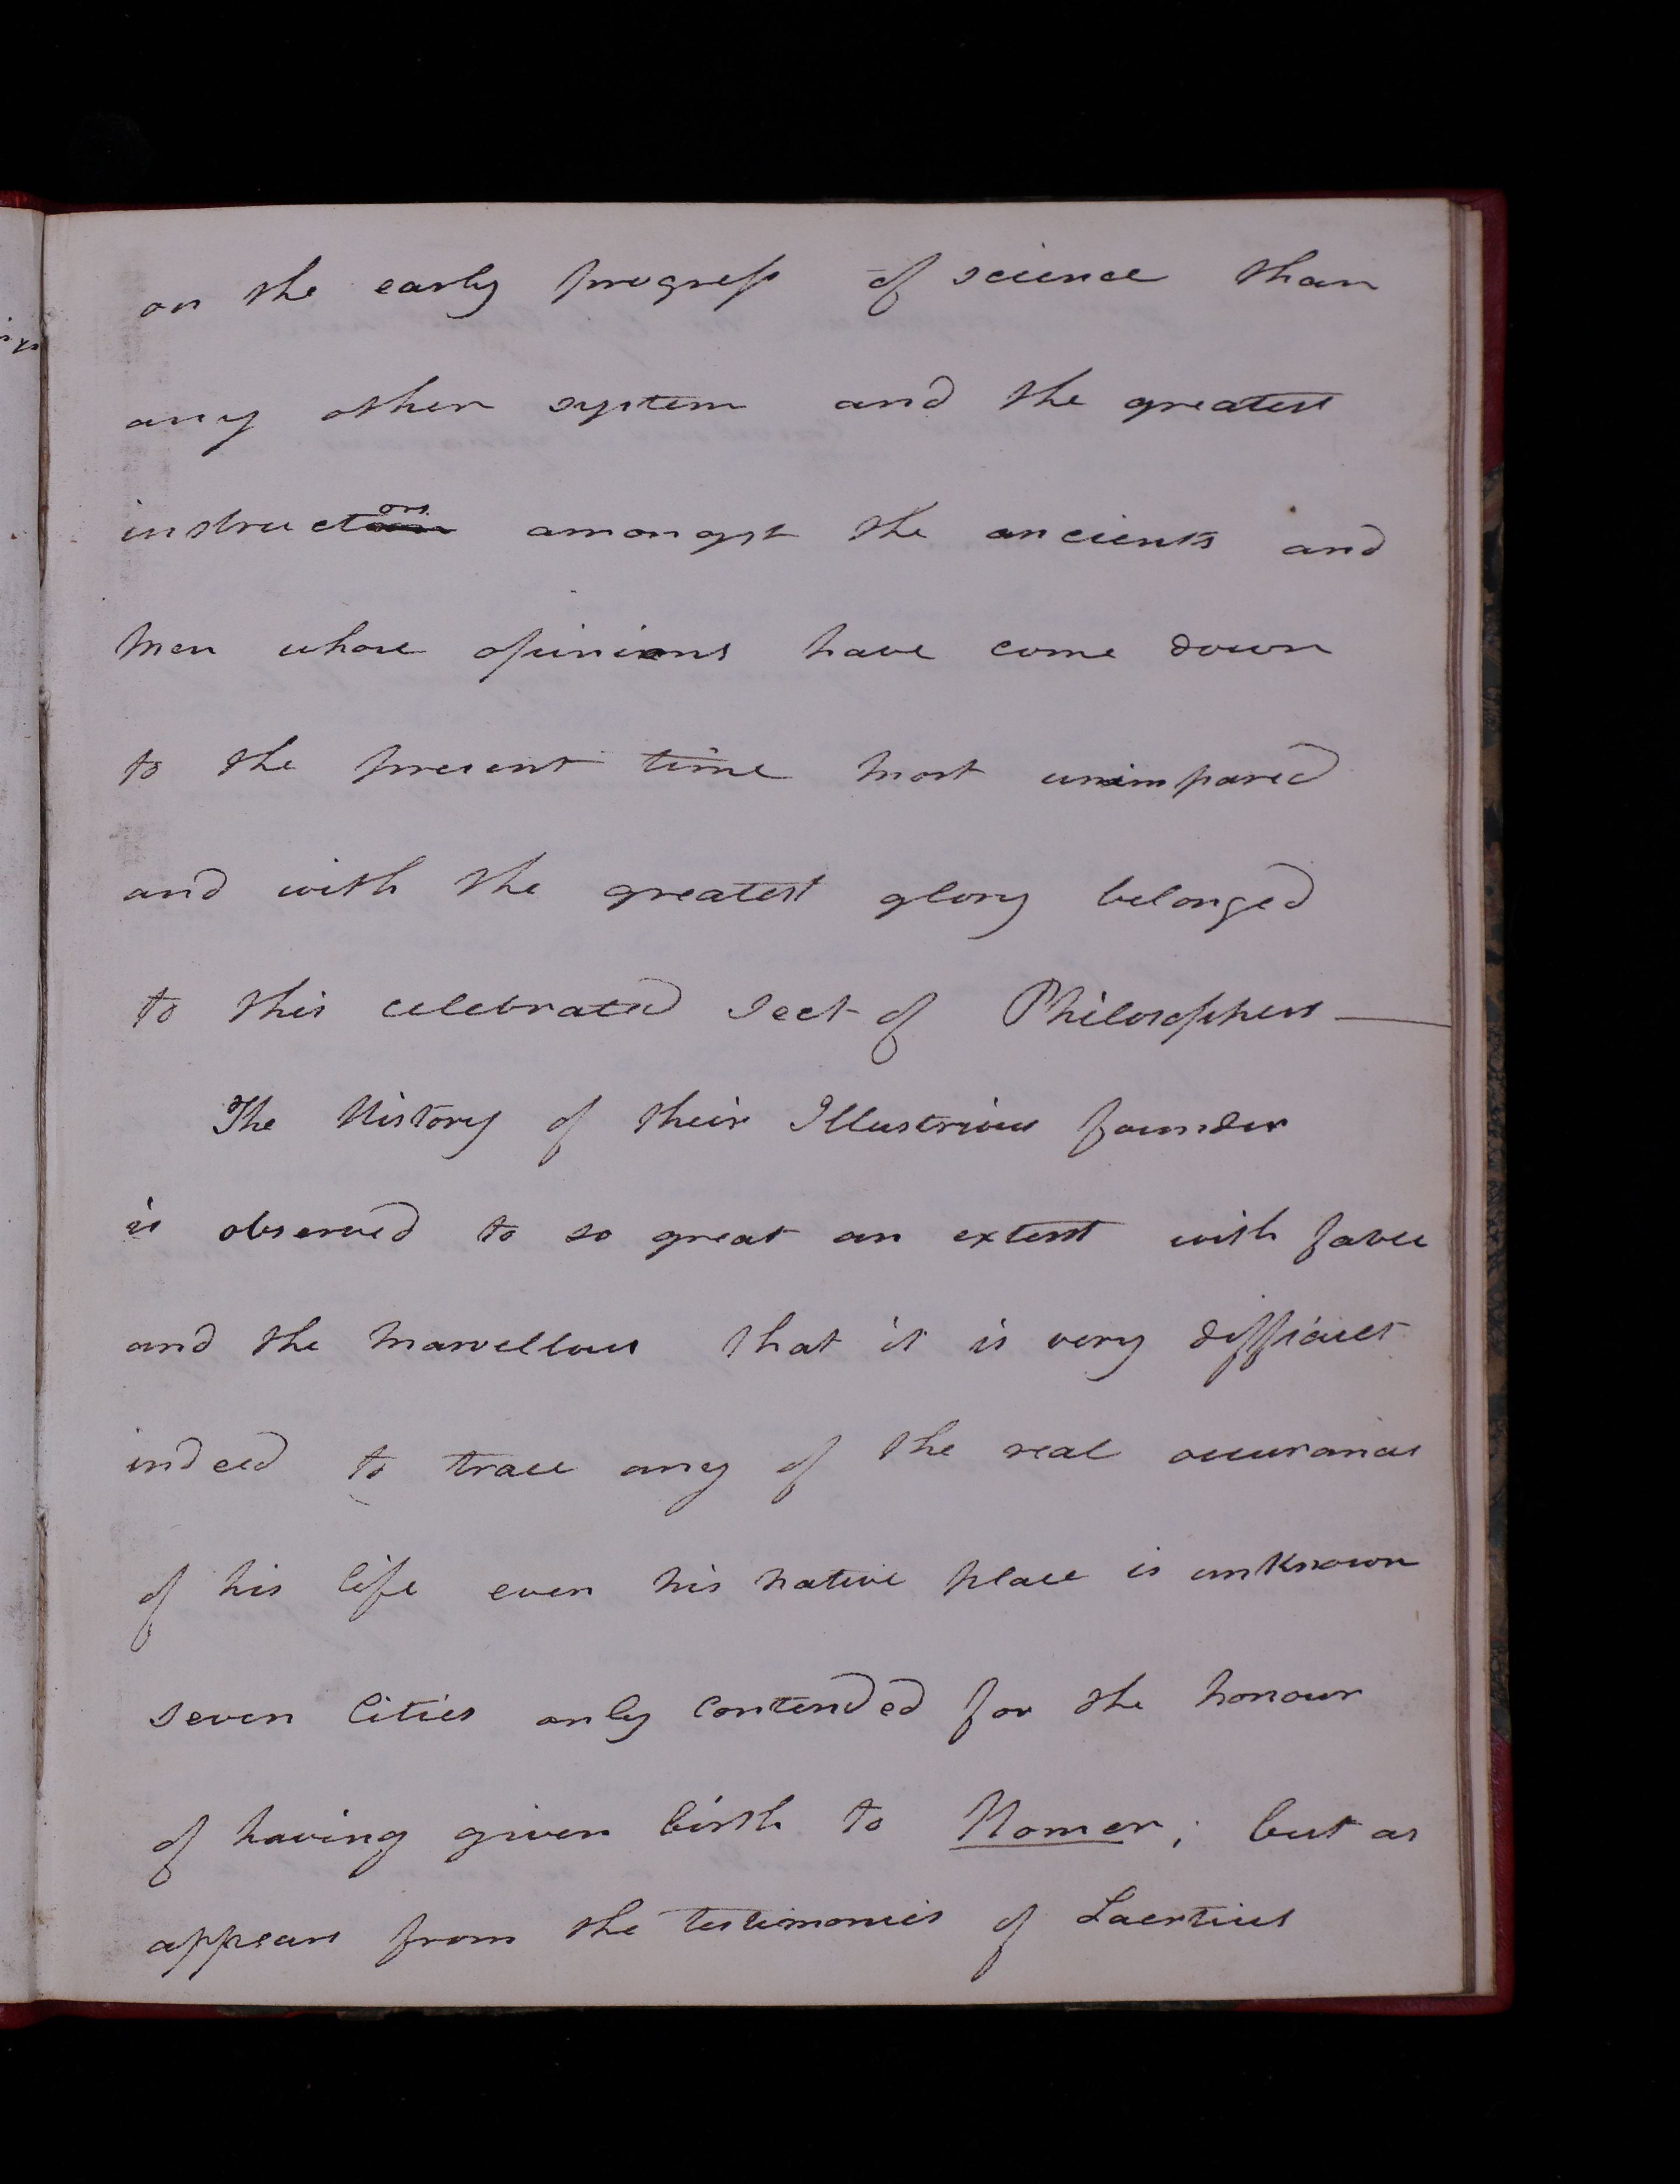 on the early progress of science than
any other system and the greatest
instructors amongst the ancients and
men whose opinions have come down
to the present time most unimpared
and with the greatest glory belonged
to this celebrated sect of Philosophers —
The History of their Illustrious founder
is observed to so great an extent with fable
and the marvellous that it is very difficult
indeed to trace any of the real occurances
of his life even his native place is unknown
seven Cities only Contended for the honour
of having given birth to Homer; but as
appears from the testimonies of Laertius